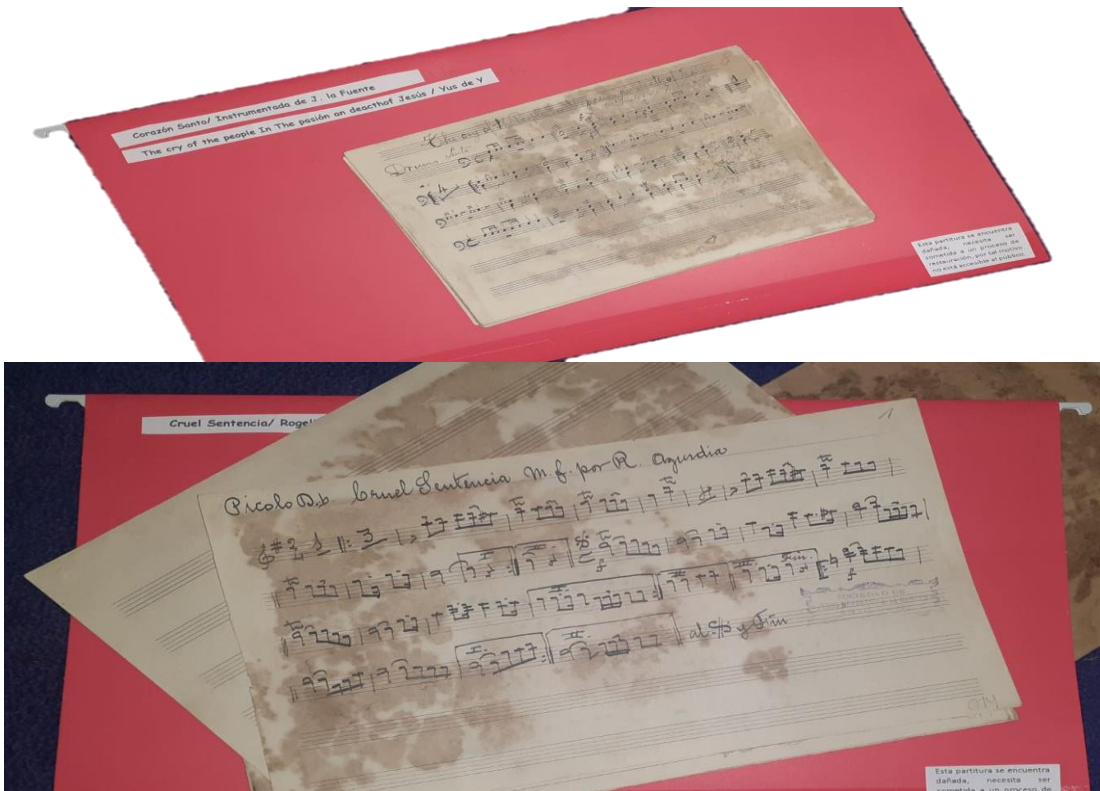 Corazón Santo/ Instrumentada de J. la Fuente
The cry of the people In The pasión an deacthof Jesús / Yus de Y
The cry of
Drums
1
Esta partitura se encuentra
dañada, necesita ser
sometida a un proceso de
restauración, por tal motivo
no está accesible al público.
Cruel Sentencia/ Rogel
1
Picolo D.b Cruel Sentencia M. f. por R. Azurdia
I. II.
Fin.
SOCIEDAD DE
I. II. al y Fin
Esta partitura se encuentra
dañada, necesita ser
sometida a un proceso de